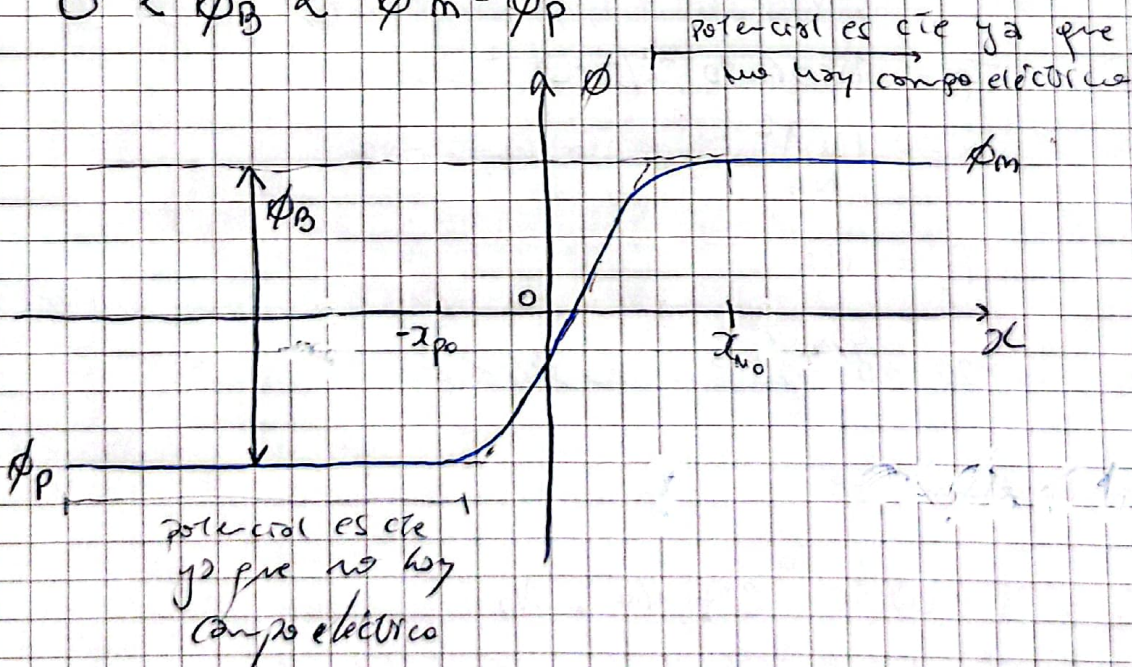 0 < φB < φn - φp
potencial es cte ya que
no hay campo eléctrico
φ
φn
φB
0
-xp0
xn0
x
φp
potencial es cte
ya que no hay
campo eléctrico